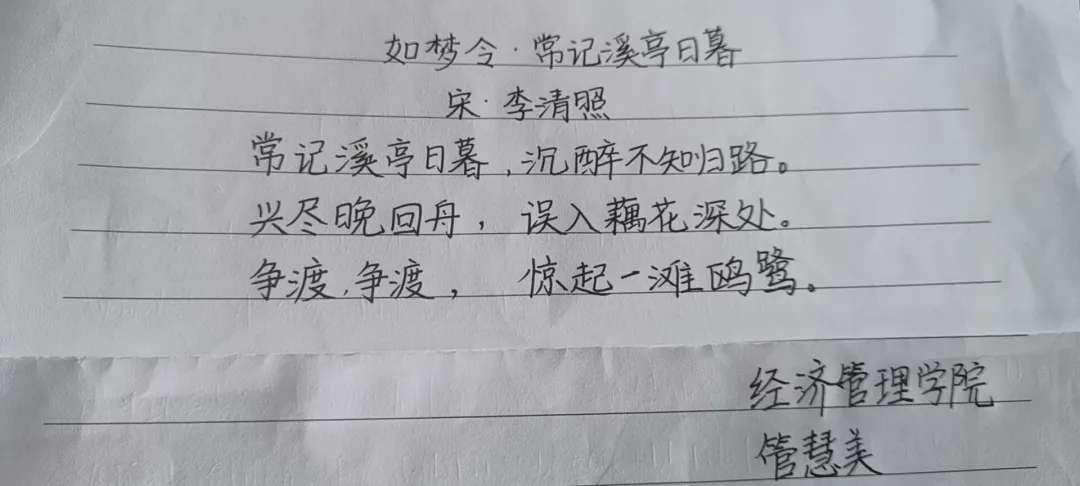 如梦令·常记溪亭日暮
宋·李清照
常记溪亭日暮,沉醉不知归路。
兴尽晚回舟,误入藕花深处。
争渡,争渡,惊起一滩鸥鹭。
经济管理学院
管慧美